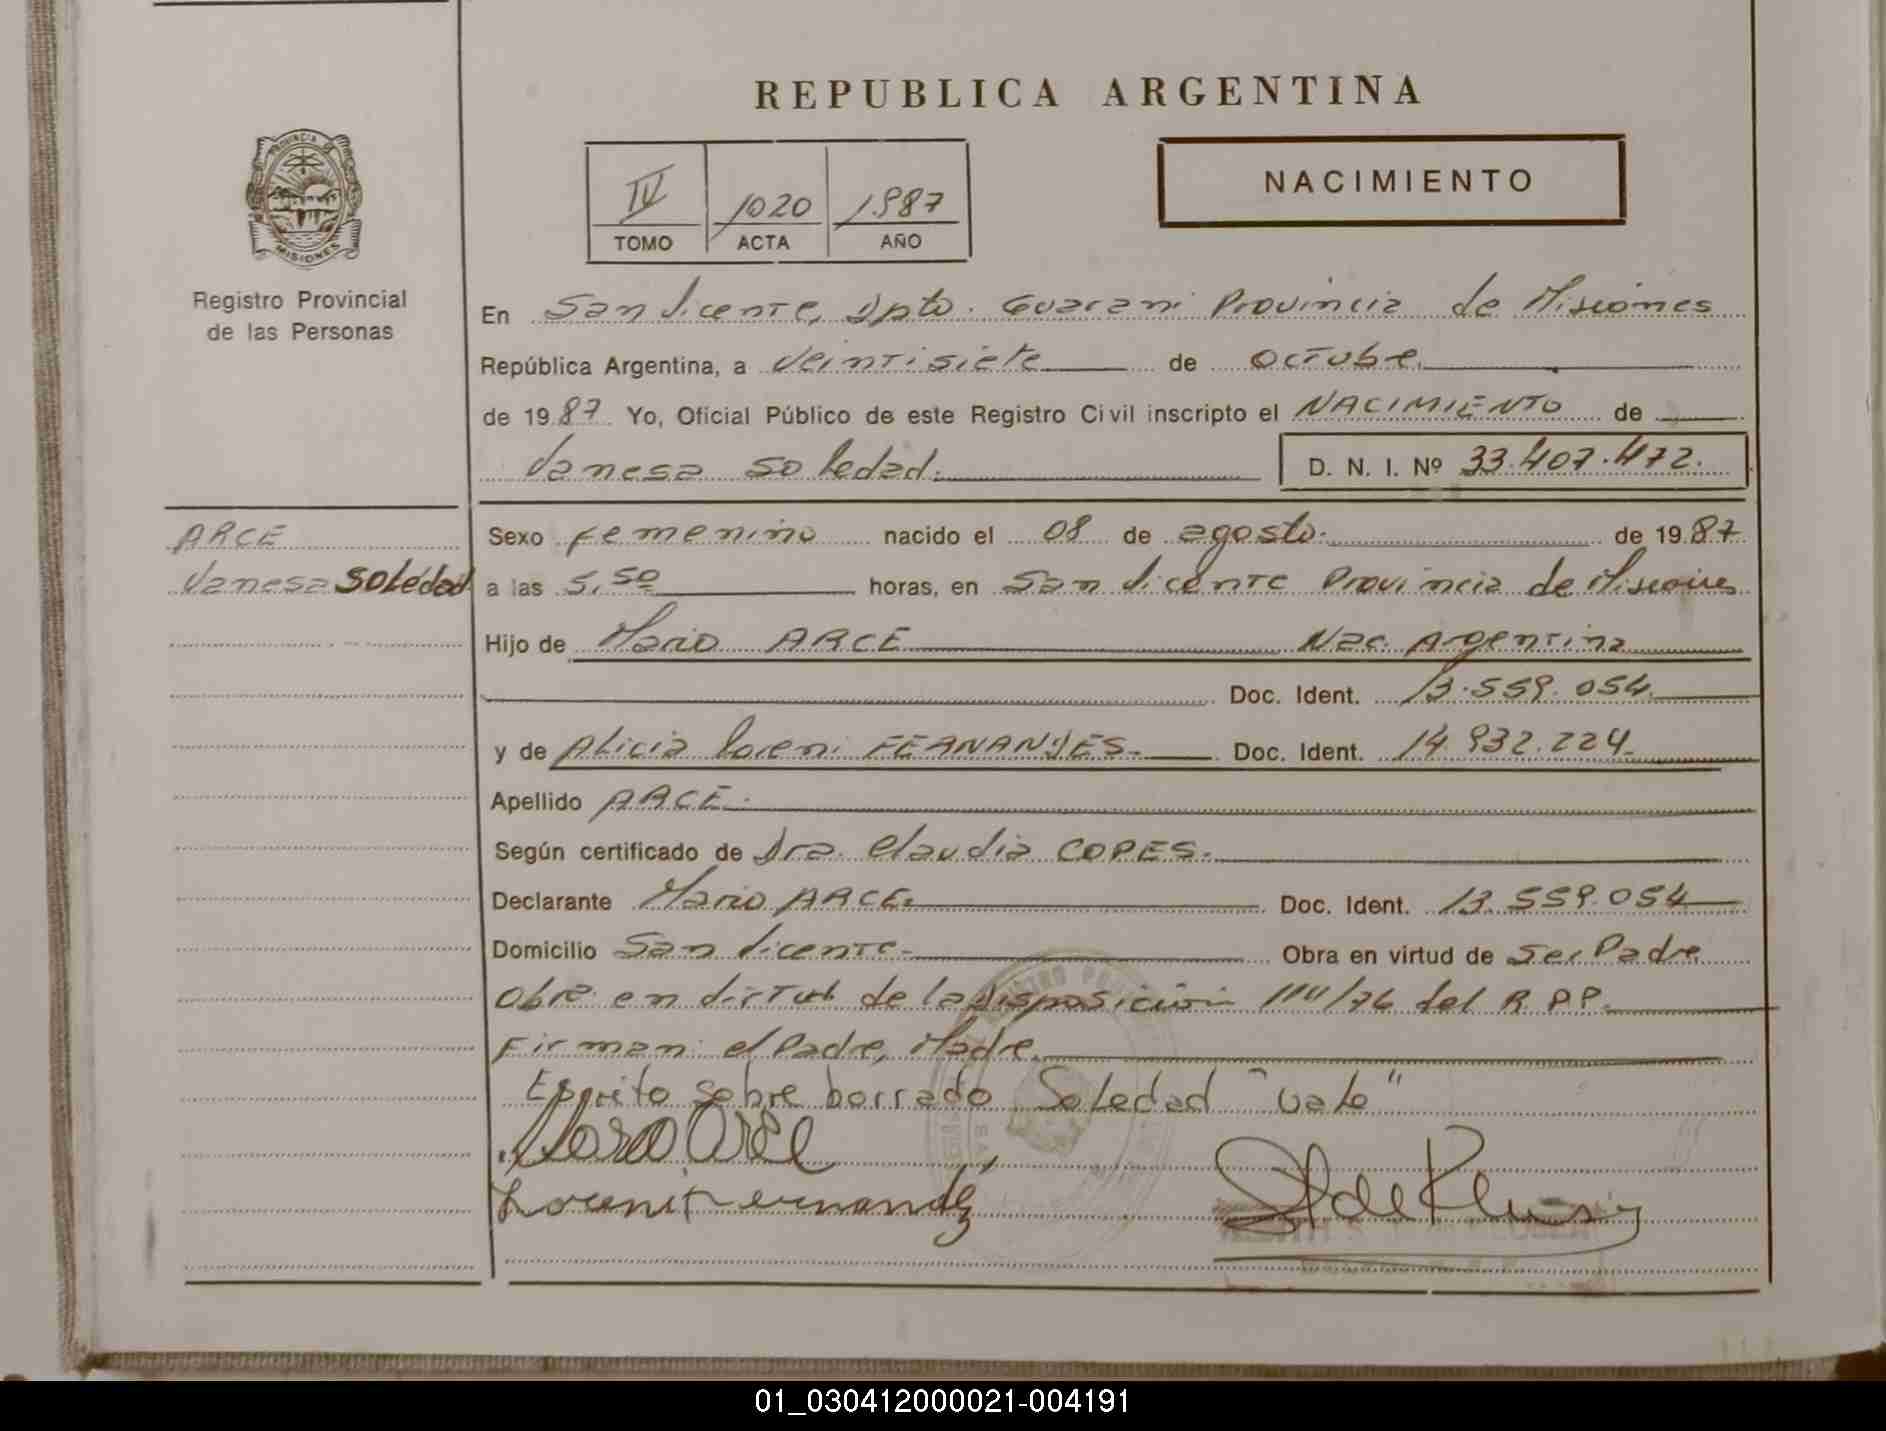 REPUBLICA ARGENTINA
PROVINCIA DE
MISIONES
Registro Provincial
de las Personas
IV 1020 1987
TOMO ACTA AÑO
NACIMIENTO
En San Vicente, Dpto. Guarani Provincia de Misiones
República Argentina, a Veintisiete de octubre.
de 1987 Yo, Oficial Público de este Registro Civil inscripto el NACIMIENTO de
Vanesa Soledad. D. N. I. Nº 33.407.472.
ARCE
Vanesa Soledad
Sexo Femenino nacido el 08 de agosto. de 1987
a las 5,50 horas, en San Vicente Provincia de Misiones
Hijo de Mario ARCE Nac. Argentina
Doc. Ident. 13.559.054
y de Alicia Loreni FERNANDES. Doc. Ident. 14.932.224
Apellido ARCE.
Según certificado de Dra. Claudia COPES.
Declarante Mario ARCE. Doc. Ident. 13.559.054
Domicilio San Vicente. Obra en virtud de Ser Padre
Obra en virtud de la Disposición 1111/76 del R.P.P.
Firman: el Padre, Madre.
sobre borrado Soledad "vale"
Arce
Loreni Fernandez
01_030412000021-004191